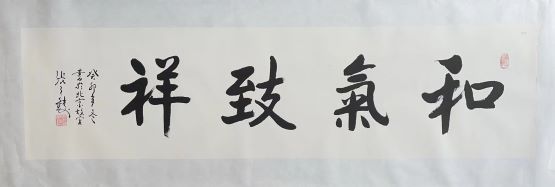 和氣致祥
癸卯年冬
書於北京